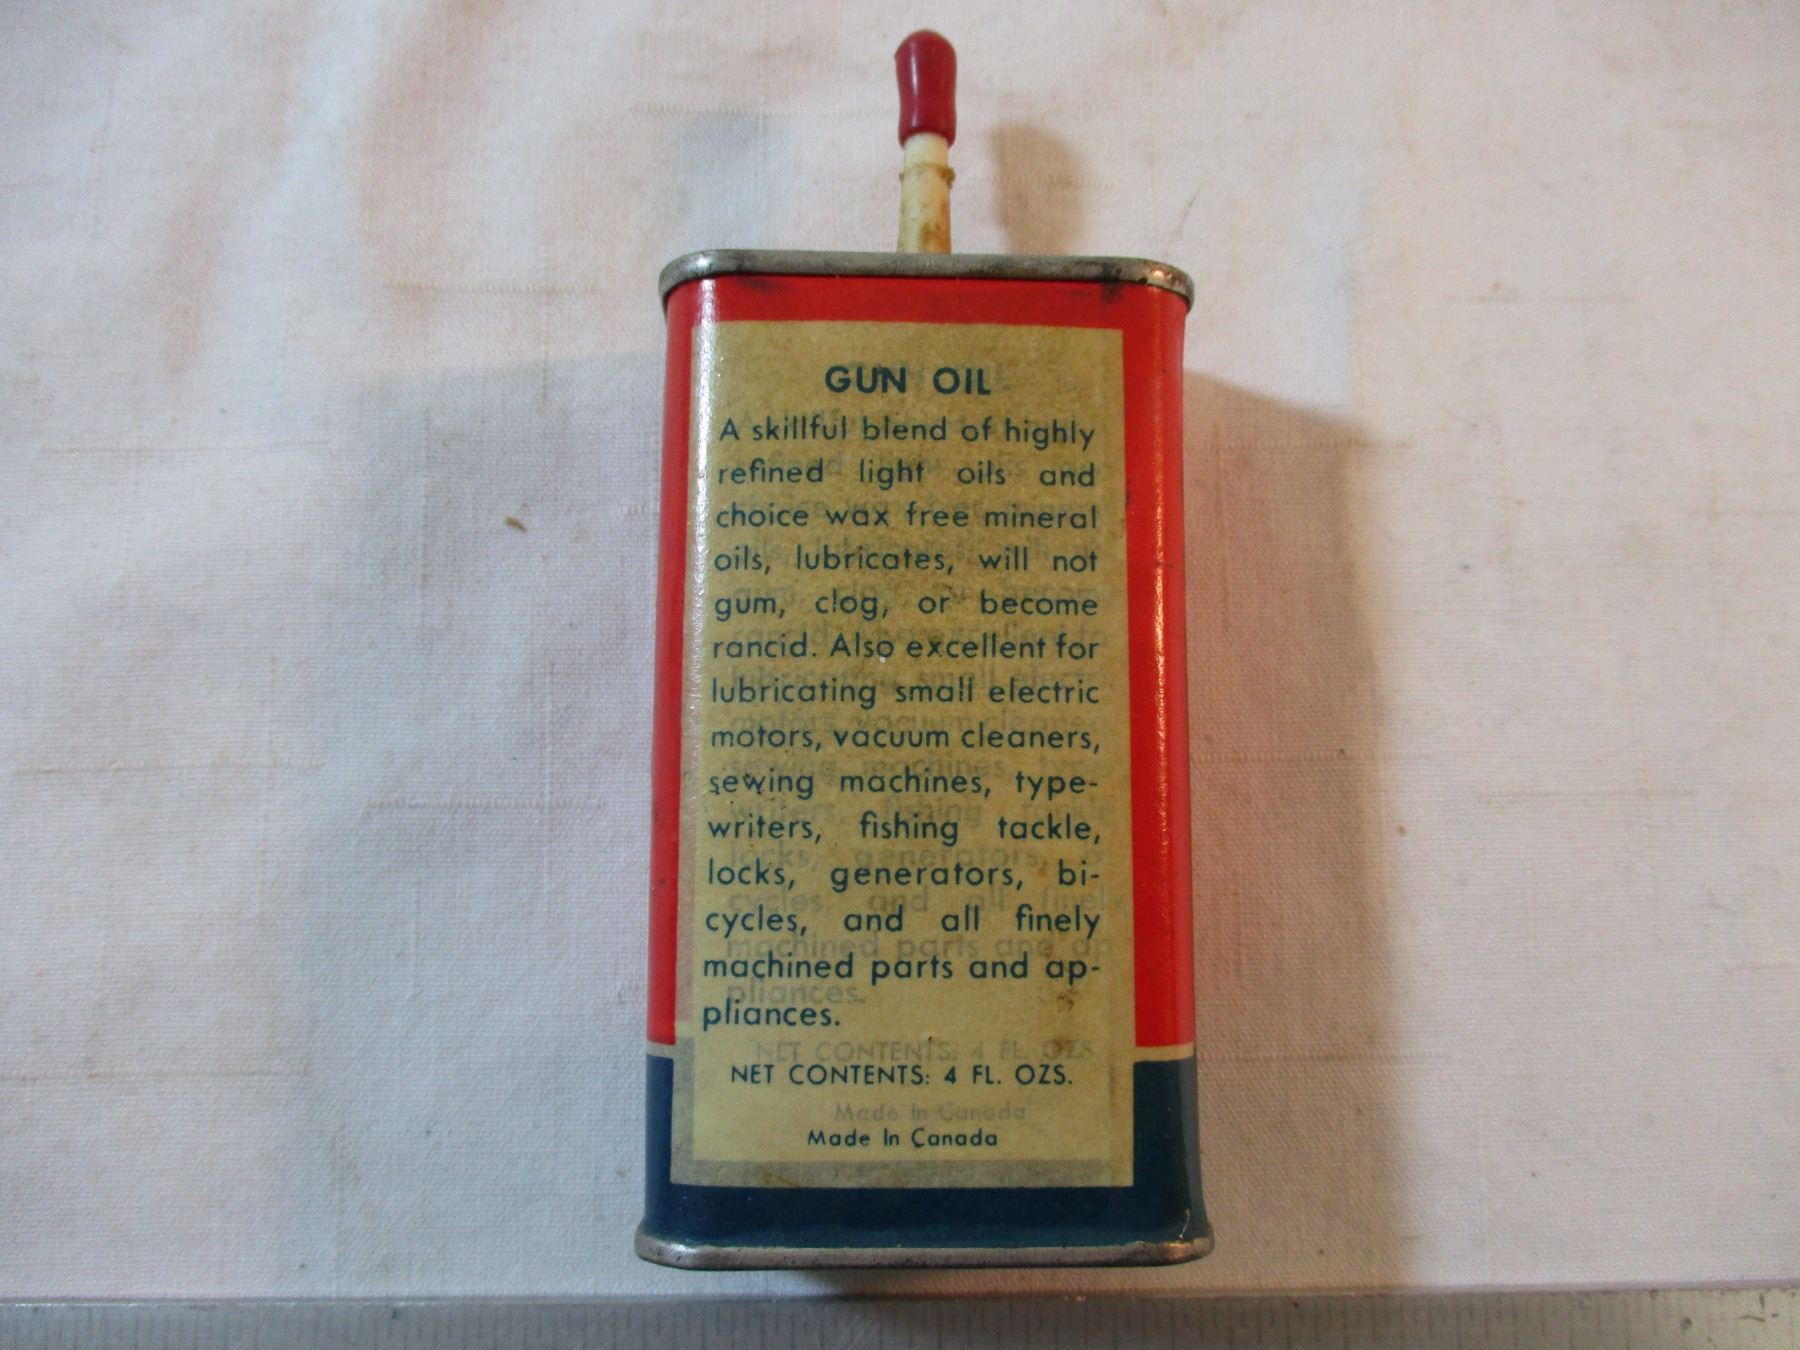 GUN OIL
A skillful blend of highly
refined light oils and
choice wax free mineral
oils, lubricates, will not
gum, clog, or become
rancid. Also excellent for
lubricating small electric
motors, vacuum cleaners,
sewing machines, type-
writers, fishing tackle,
locks, generators, bi-
cycles, and all finely
machined parts and ap-
pliances.
NET CONTENTS: 4 FL. OZS.
Made In Canada